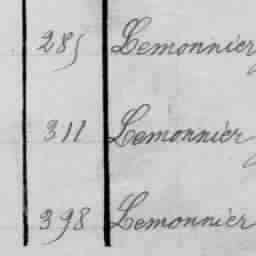 285 Lemonnier
311 Lemonnier
398 Lemonnier